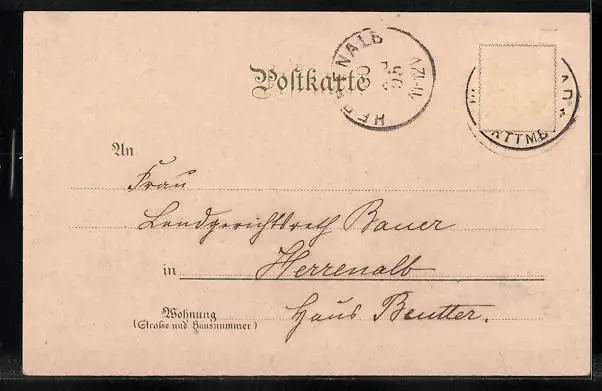 Postkarte
HERRENALB
An
Frau
Landgerichtsrath Bauer
in Herrenalb
Wohnung
(Straße und Hausnummer)
Haus Beutter.